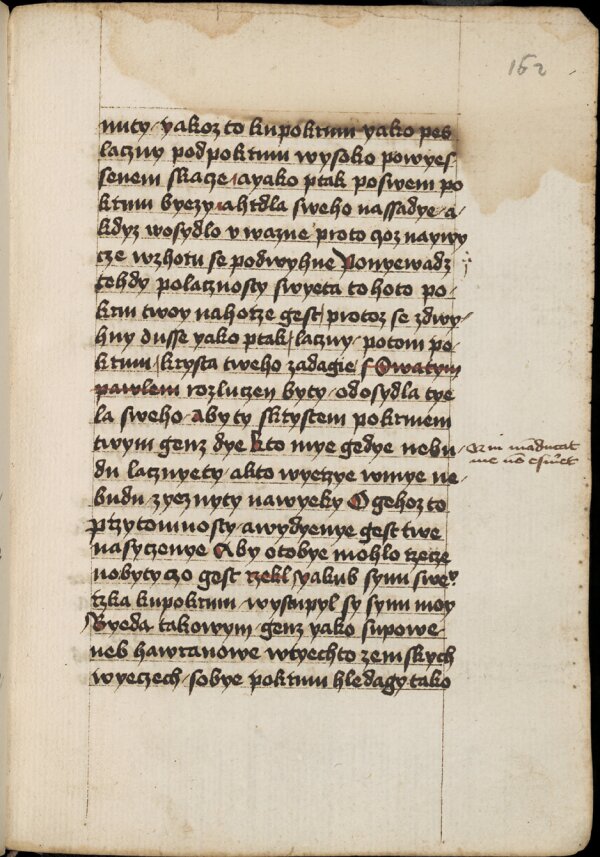 152
nuty yakoz to kupokrmu yako pes
laczny podpokrmu wysoko powyes
senem skacze ayako ptak poswem po
krmu byezy ahrdla sweho nassadye a
kdyz wosydlo uwazne proto qoz naywy
cze wzhoru se podwyhne Ponyewadz
tehdy polacznosty swyeta tohoto po
krm twoy nahorze gest protoz se zdwy
hny dusse yako ptak laczny potom po
krmu krysta tweho zadagie s Swatym
pawlem rozluczen byty odosydla tye
la sweho Aby ty skrystem pokrmem
twym genz dye kto mye gedye nebu
du lacznyety akto wyerzye wmye ne
budu zyeznyty nawyeky O gehoz to
przytomnosty awydyenye gest twe
nasyczenye Aby otobye mohlo rzecze
nobyty czo gest rzekl yakub synu swe
rzka kupokrmu wystupyl sy synu moy
Byeda takowym genz yako supowe
neb hawranowe wtyechto zemskych
wyeczech sobye pokrmu hledagy tako
Qui manducat
me non esuriet